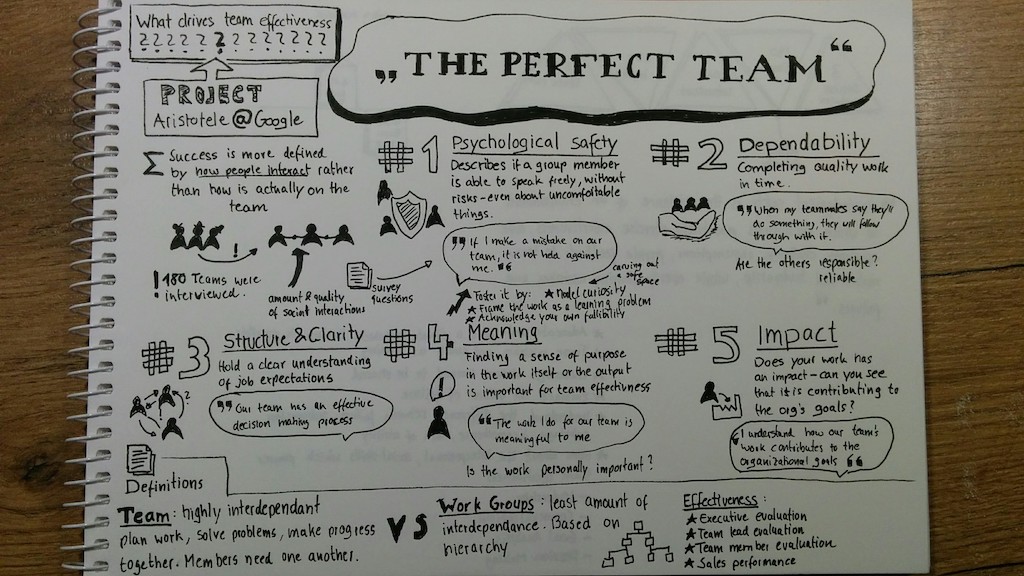 What drives team effectiveness
? ? ? ? ? ? ? ? ? ? ? ? ?
PROJECT
Aristotele @ Google
„THE PERFECT TEAM“
Σ Success is more defined
by how people interact rather
than how is actually on the
team
!
! 180 Teams were
interviewed.
amount & quality
of social interactions
survey
questions
#1 Psychological Safety
Describes if a group member
is able to speak freely, without
risks - even about uncomfortable
things.
„If I make a mistake on our
team, it is not held against
me.“
carving out
a safe
space
Foster it by: ★ Model curiosity
★ Frame the work as a learning problem
★ Acknowledge your own fallibility
#2 Dependability
Completing quality work
in time.
„When my teammates say they'll
do something, they will follow
through with it.
Are the others responsible?
reliable
#3 Structure & Clarity
Hold a clear understanding
of job expectations
?
„Our team has an effective
decision making process
#4 Meaning
Finding a sense of purpose
in the work itself or the output
is important for team effectivness
!
„The work I do for our team is
meaningful to me
Is the work personally important?
#5 Impact
Does your work has
an impact - can you see
that it is contributing to
the org's goals?
„I understand how our team's
work contributes to the
organizational goals“
Definitions
Team: highly interdependant
plan work, solve problems, make progress
together. Members need one another.
VS
Work Groups: least amount of
interdependance. Based on
hierarchy
Effectiveness:
★ Executive evaluation
★ Team lead evaluation
★ Team member evaluation
★ Sales performance